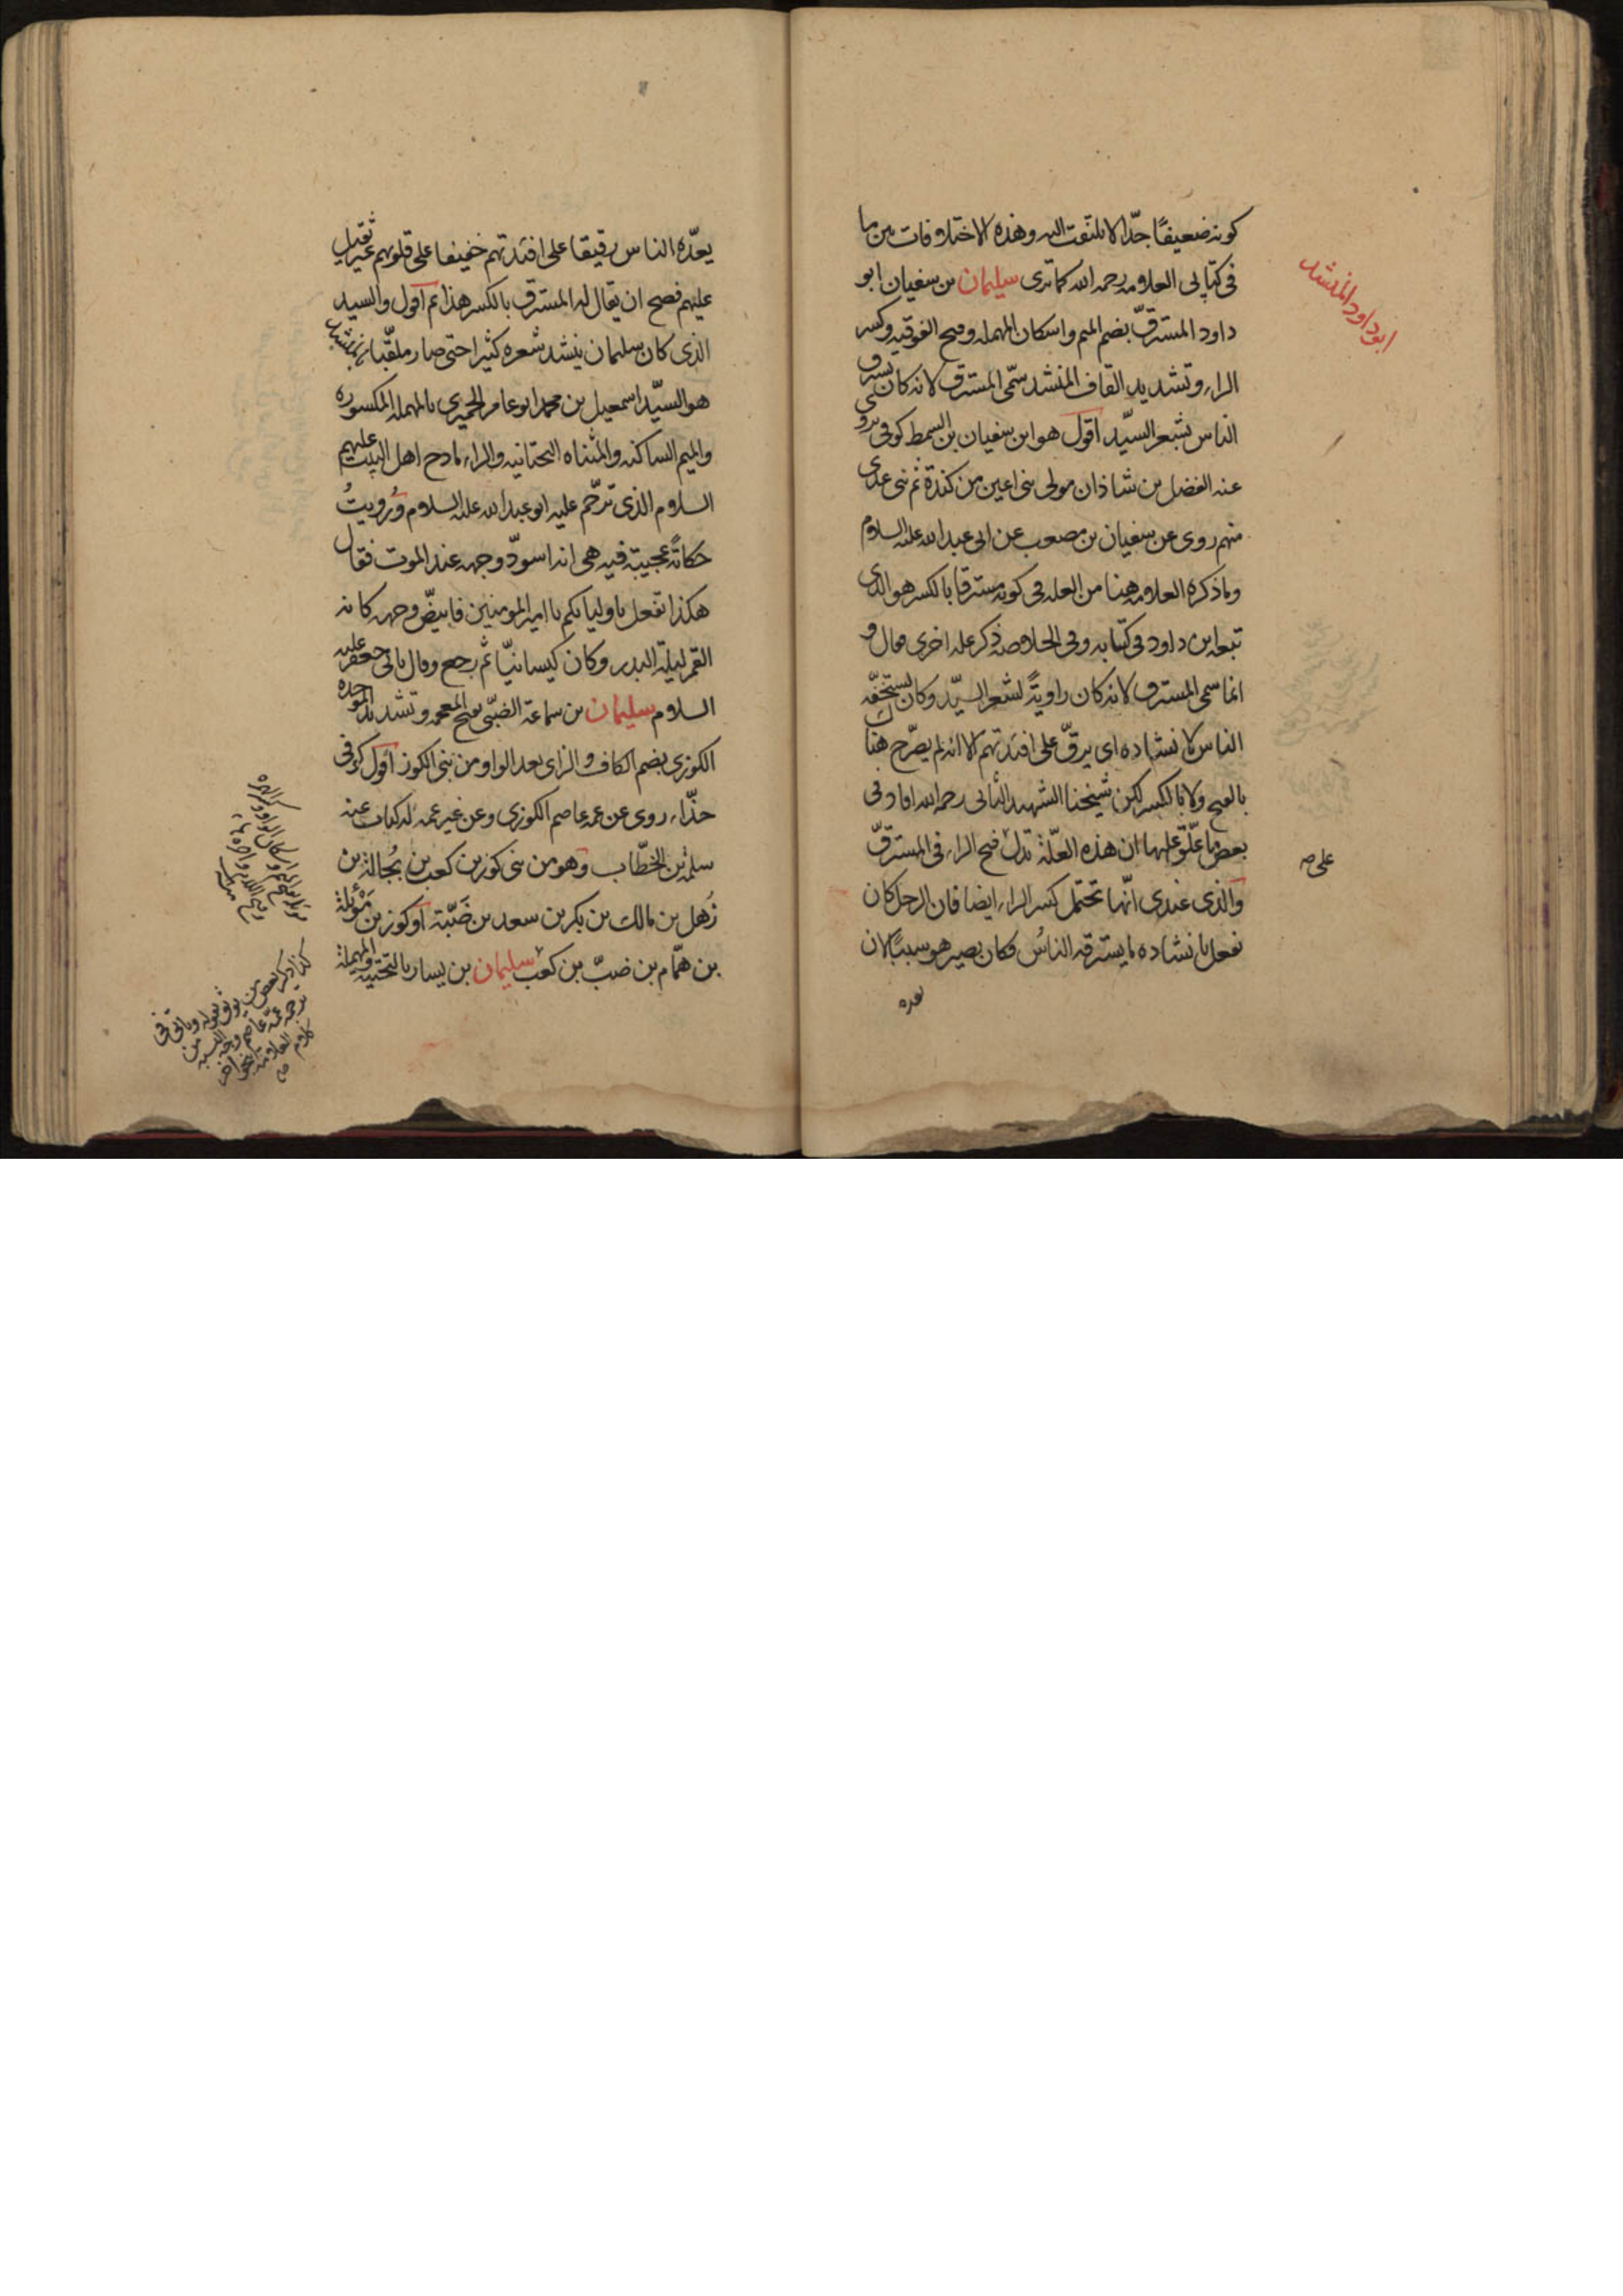 كونه ضعيفًا جدّا لا يلتفت اليه وهذه الاختلافات من ما
فى كتابى العلامه رحمه الله كما ترى سليمان بن سفيان ابو
داود المسترقّ بضم الميم واسكان المهمله وفتح الفوقيه وكسر
الراء وتشديد القاف المنشد سمّى المسترق لانه كان يسترق
الناس بشعر السيّد اقول هو ابن سفيان بن السمط كوفى يروى
عنه الفضل بن شاذان مولى بنى اعين من كندة ثم بنى عدى
منهم روى عن سفيان بن مصعب عن ابى عبدالله عليه السلام
وما ذكره العلامه هنا من العله فى كونه مسترقا بالكسر هو الذى
تبعه ابن داود فى كتابه وفى الخلاصه ذكر عله اخرى فقال و
انما سمى المسترق لانه كان راويةً لشعر السيّد وكان يستخفّه
الناس لانشاده اى يرقّ على افئدتهم الا انه لم يصرّح هناك
بالفتح ولا بالكسر لكن شيخنا الشهيد الثانى رحمه الله افاد فى
بعض ما علّق عليها ان هذه العلّة تدل فتح الراء فى المسترقّ
والذى عندى انّها تحتمل كسر الراء ايضا فان الرجل كان
نفعل بانشاده ما يسترقه الناسُ فكان يصير هو سببًا لان
يعده
ابوداود المنشد
على صه
يعدّه الناس رقيقا على افئدتهم خفيفا على قلوبهم غير ثقيل
عليهم فصح ان يقال له المسترق بالكسر هذا ثم اقول والسيد
الذى كان سليمان ينشد شعره كثيرا حتى صار ملقّبا بالمنشد
هو السيّد اسمعيل بن محمد ابو عامر الحميرى بالمهمله المكسوره
والميم الساكنه والمثناه التحتانيه والراء مادح اهل البيت عليهم
السلام الذى ترحّم عليه ابو عبدالله عليه السلام ورُويتُ
حكايةً عجيبة فيه هى انه اسودّ وجهه عند الموت فقال
هكذا تفعل باوليائكم يا امير المومنين فابيضّ وجهه كانه
القمر ليلة البدر وكان كيسانيّا ثم رجع وقال بابى جعفر عليه
السلام سليمان بن سماعة الضبّى بفتح المعجمه وتشديد الموحده
الكوزى بضم الكاف والزاى بعد الواو من بنى الكوز اقول كوفى
حذّاء روى عن عمه عاصم الكوزى وعن غير عمه له كتاب عنه
سلمة بن الخطّاب وهو من بنى كوز بن كعب بن بُجالة بن
ذُهل بن مالك بن بكر بن سعد بن ضَبّة او كوز بن مَوْئلة
بن همّام بن ضبّ بن كعب سليمان بن يسار بالتحتيه والمهملة
كذا ذكر بعض من يوثق بقوله وياتى فى
ترجمه عمّه عاصم وجه النسبه من
كلام العلامة بنحو اخر
منه